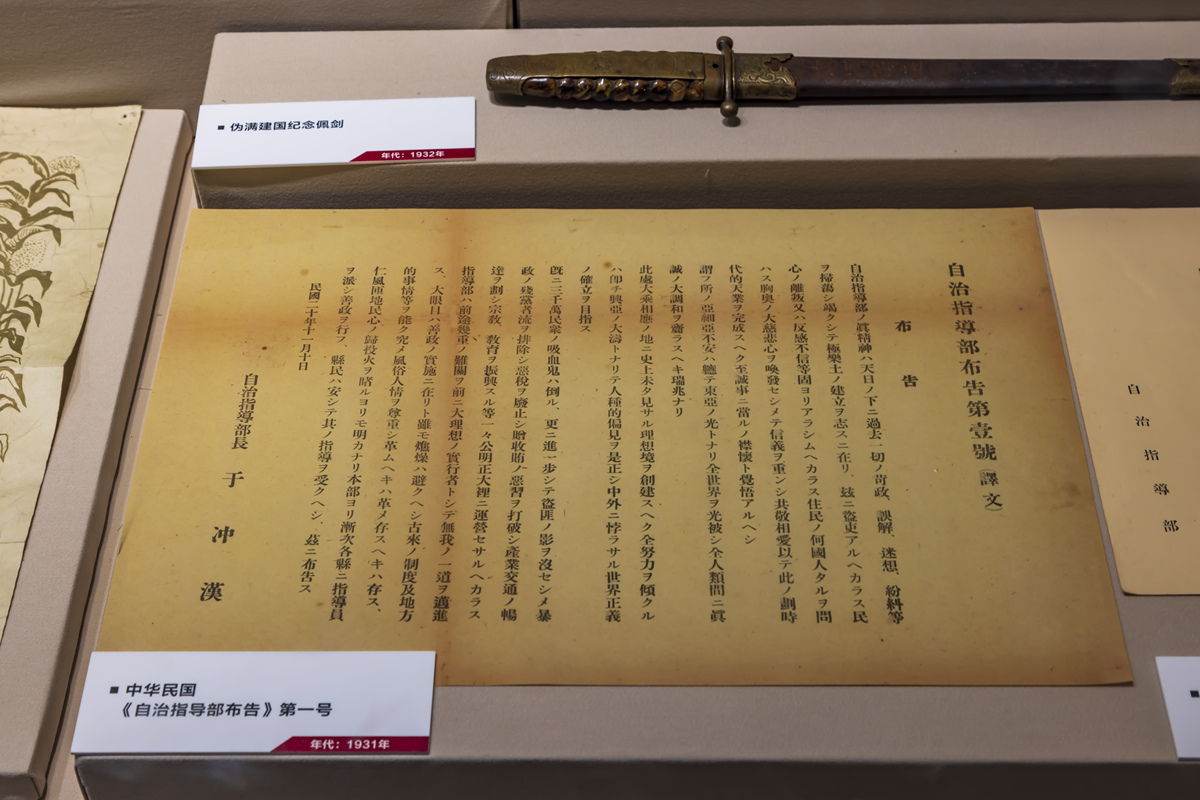 ■ 伪满建国纪念佩剑
年代：1932年
自治指導部布告第壹號（譯文）
布告
自治指導部ノ眞精神ハ天日ノ下ニ過去一切ノ苛政、誤解、迷想、紛糾等
ヲ掃蕩シ竭クシテ極樂土ノ建立ヲ志スニ在リ、玆ニ盜吏アルヘカラス民
心ノ離叛又ハ反感不信等固ヨリアラシムヘカラス住民ノ何國人タルヲ問
ハス胸奧ノ大慈悲心ヲ喚發セシメテ信義ヲ重ンシ共敬相愛以テ此ノ劃時
代的天業ヲ完成スヘク至誠事ニ當ルノ襟懷ト覺悟アルヘシ
謂フ所ノ亞細亞不安ハ軈テ東亞ノ光トナリ全世界ヲ光被シ全人類間ニ眞
誠ノ大調和ヲ齎ラスヘキ瑞兆ナリ
此處大乘相應ノ地ニ史上未タ見サル理想境ヲ創建スヘク全努力ヲ傾クル
ハ卽チ興亞ノ大濤トナリテ人種的偏見ヲ是正シ中外ニ悖ラサル世界正義
ノ確立ヲ目指ス
旣ニ三千萬民衆ノ吸血鬼ハ倒ル、更ニ進一步シテ盜匪ノ影ヲ沒セシメ暴
政ノ殘黨者流ヲ排除シ惡稅ヲ廢止シ贈收賄ノ惡習ヲ打破シ產業交通ノ暢
達ヲ劃シ宗敎、敎育ヲ振興スル等一々公明正大裡ニ運營セサルヘカラス
指導部ハ前途幾重ノ難關ヲ前ニ大理想ノ實行者トシテ無我ノ一道ヲ邁進
ス、大眼目ハ善政ノ實施ニ在リト雖モ焦燥ハ避クヘシ古來ノ制度及地方
的事情等ヲ能ク究メ風俗人情ヲ尊重シ革ムヘキハ革メ存スヘキハ存ス、
仁風匝地民心ノ歸投火ヲ睹ルヨリモ明カナリ本部ヨリ漸次各縣ニ指導員
ヲ派シ善政ヲ行フ、縣民ハ安シテ其ノ指導ヲ受クヘシ、玆ニ布告ス
民國二十年十一月十日
自治指導部長 于冲漢
自治指導部
■ 中华民国
《自治指导部布告》第一号
年代：1931年